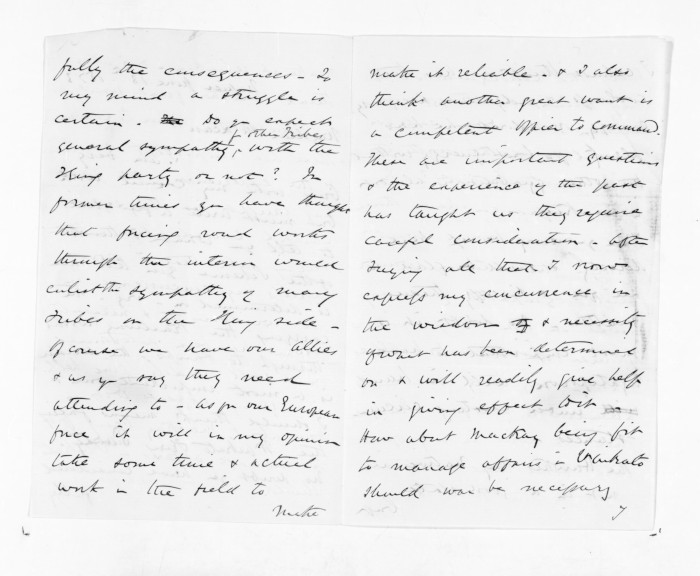 fully the consequences - To
my mind a struggle is
certain. Do you expect
of other Tribes
general sympathy, with the
King party or not? In
former times you have thought
that forcing road works
through the interior would
enlist the sympathy of many
tribes on the King side -
of course we have our Allies
& as you say they need
attending to - as for our European
force it will in my opinion
take some time & actual
work in the field to
make
make it reliable - & I also
think another great want is
a competent officer to command.
These are important questions
& the experience of the past
has taught us they require
careful consideration - After
saying all that I now
express my concurrence in
the wisdom of & necessity
of what has been determined
on & will readily give help
in giving effect to it -
How about Mackay being fit
to manage affairs in Waikato
should war be necessary